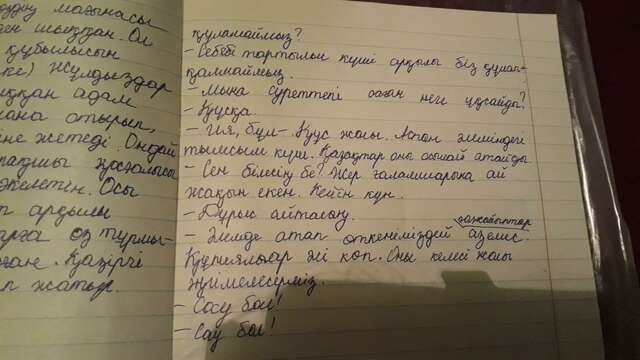 здің мағынасы
ен шыққан. Ол
құбылысын
ке) Жұлдыздар
ққан адам
ана отырып,
іне жетеді. Ондай
келетін. Осы
п арқылы
арға өз тұрмы-
ған. Қазіргі
п жатыр.
құламаймыз?
- Себебі тартылыс күші арқылы біз құлап-
қалмаймыз.
- Мына суреттегі саған неге ұқсайды?
- Құсқа.
- Ия, бұл - Құс жолы. Аспан әлеміндегі
тылсым күш. Қазақтар оны осылай атайды
- Сен білесің бе? Жер ғаламшарына ай
жақын екен. Кейін күн.
- Дұрыс айтасың.
ғажайыптар
- Әлемде атап өткеніміздей аз емес.
Құпиялылар әлі көп. Оны келесі жолы
әңгімелесерміз.
- Сау бол!
- Сау бол!